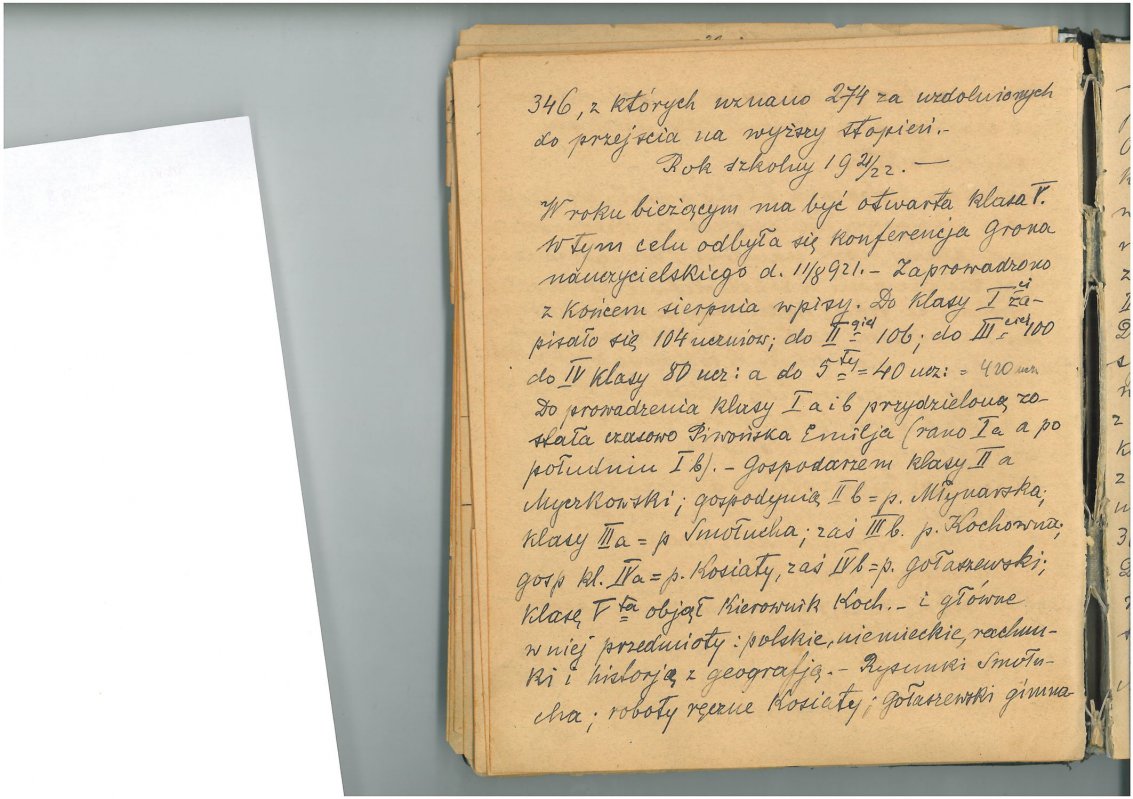 346, z których uznano 274 za uzdolnionych
do przejścia na wyższy stopień.-
Rok szkolny 1921/22. —
W roku bieżącym ma być otwarta klasa V.
W tym celu odbyła się konferencja grona
nauczycielskiego d. 11/8 921.- Zaprowadzono
z końcem sierpnia wpisy. Do klasy I ej za-
pisało się 104 uczniów; do II giej 106; do III ciej 100
do IV klasy 80 ucz: a do 5 tej = 40 ucz: = 420 ucz.
Do prowadzenia klasy I a i b przydzieloną zo-
stała czasowo Piwońska Emilja (rano Ia a po
południu I b). - Gospodarzem klasy II a
Myczkowski; gospodynią II b = p. Młynarska;
klasy IIIa = p Smołucha; zaś III b. p. Kochowna;
gosp kl. IVa = p. Kosiaty, zaś IVb = p. Gołaszewski;
klasę V ta objął Kierownik Koch. - i główne
w niej przedmioty: polskie, niemieckie, rachun-
ki i historją z geografją. - Rysunki Smołu-
cha; roboty ręczne Kosiaty; Gołaszewski gimna-